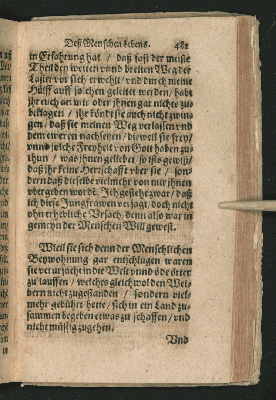 Deß Menschen Lebens. 481
in Erfahrung hat / daß fast der meiste
Theil den weiten vnnd breiten Weg der
Laster vor sich erwehlet / vnd durch meine
Hülff auff solchen geleitet werden / habt
ihr euch ab mir oder ihnen gar nichts zu
beklagen / ihr könt sie auch nicht zwin-
gen / daß sie meinen Weg verlassen vnd
dem eweren nachsehen / dieweil sie frey /
vnnd solche Freyheit von Gott haben zu
thun / was ihnen geliebet / so ists gewiß /
daß ihr keine Herrschafft vber sie / son-
dern daß dieselbe vielmehr von mir ihnen
vbergeben worde. Ich gestehe zwar / daß
ich diese Jungfrawen verjagt, doch nicht
ohn erhebliche Vrsach / denn also war in
gemeyn der Menschen Will gewest.
Weil sie sich denn der Menschlichen
Beywohnung gar entschlugen waren
sie verursacht in die Welt vnnd öde örter
zu lauffen / welches gleichwol den Wei-
bern nicht zugestanden / sondern viel-
mehr gebührt hette / sich in ein Land zu-
sammen begeben etwas zu schaffen / vnd
nicht müssig zugehen.
Vnd